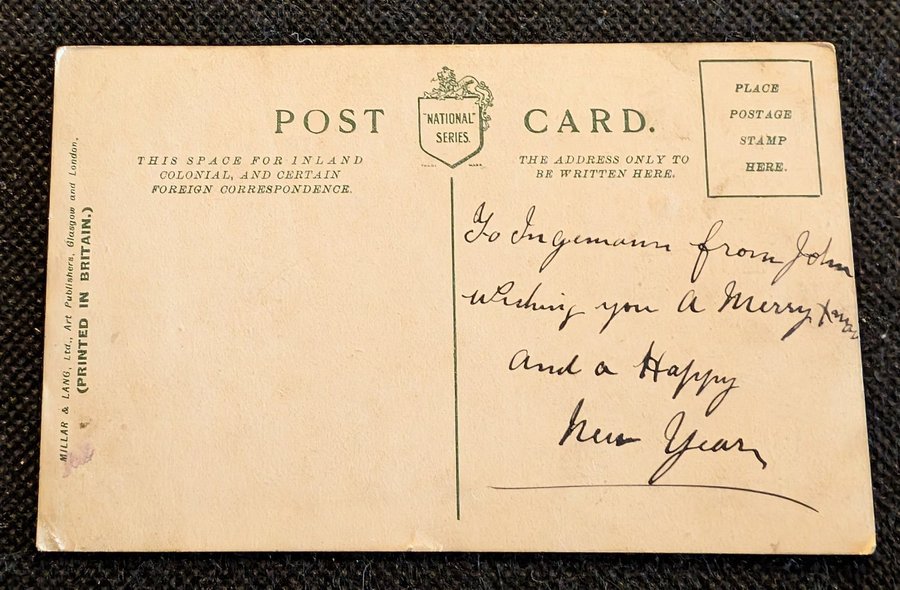 POST CARD.
"NATIONAL"
SERIES.
TRADE MARK
THIS SPACE FOR INLAND
COLONIAL, AND CERTAIN
FOREIGN CORRESPONDENCE.
THE ADDRESS ONLY TO
BE WRITTEN HERE.
PLACE
POSTAGE
STAMP
HERE.
MILLAR & LANG, Ltd., Art Publishers, Glasgow and London.
(PRINTED IN BRITAIN.)
To Ingemann from John
Wishing you A Merry Xmas
and a Happy
New Year